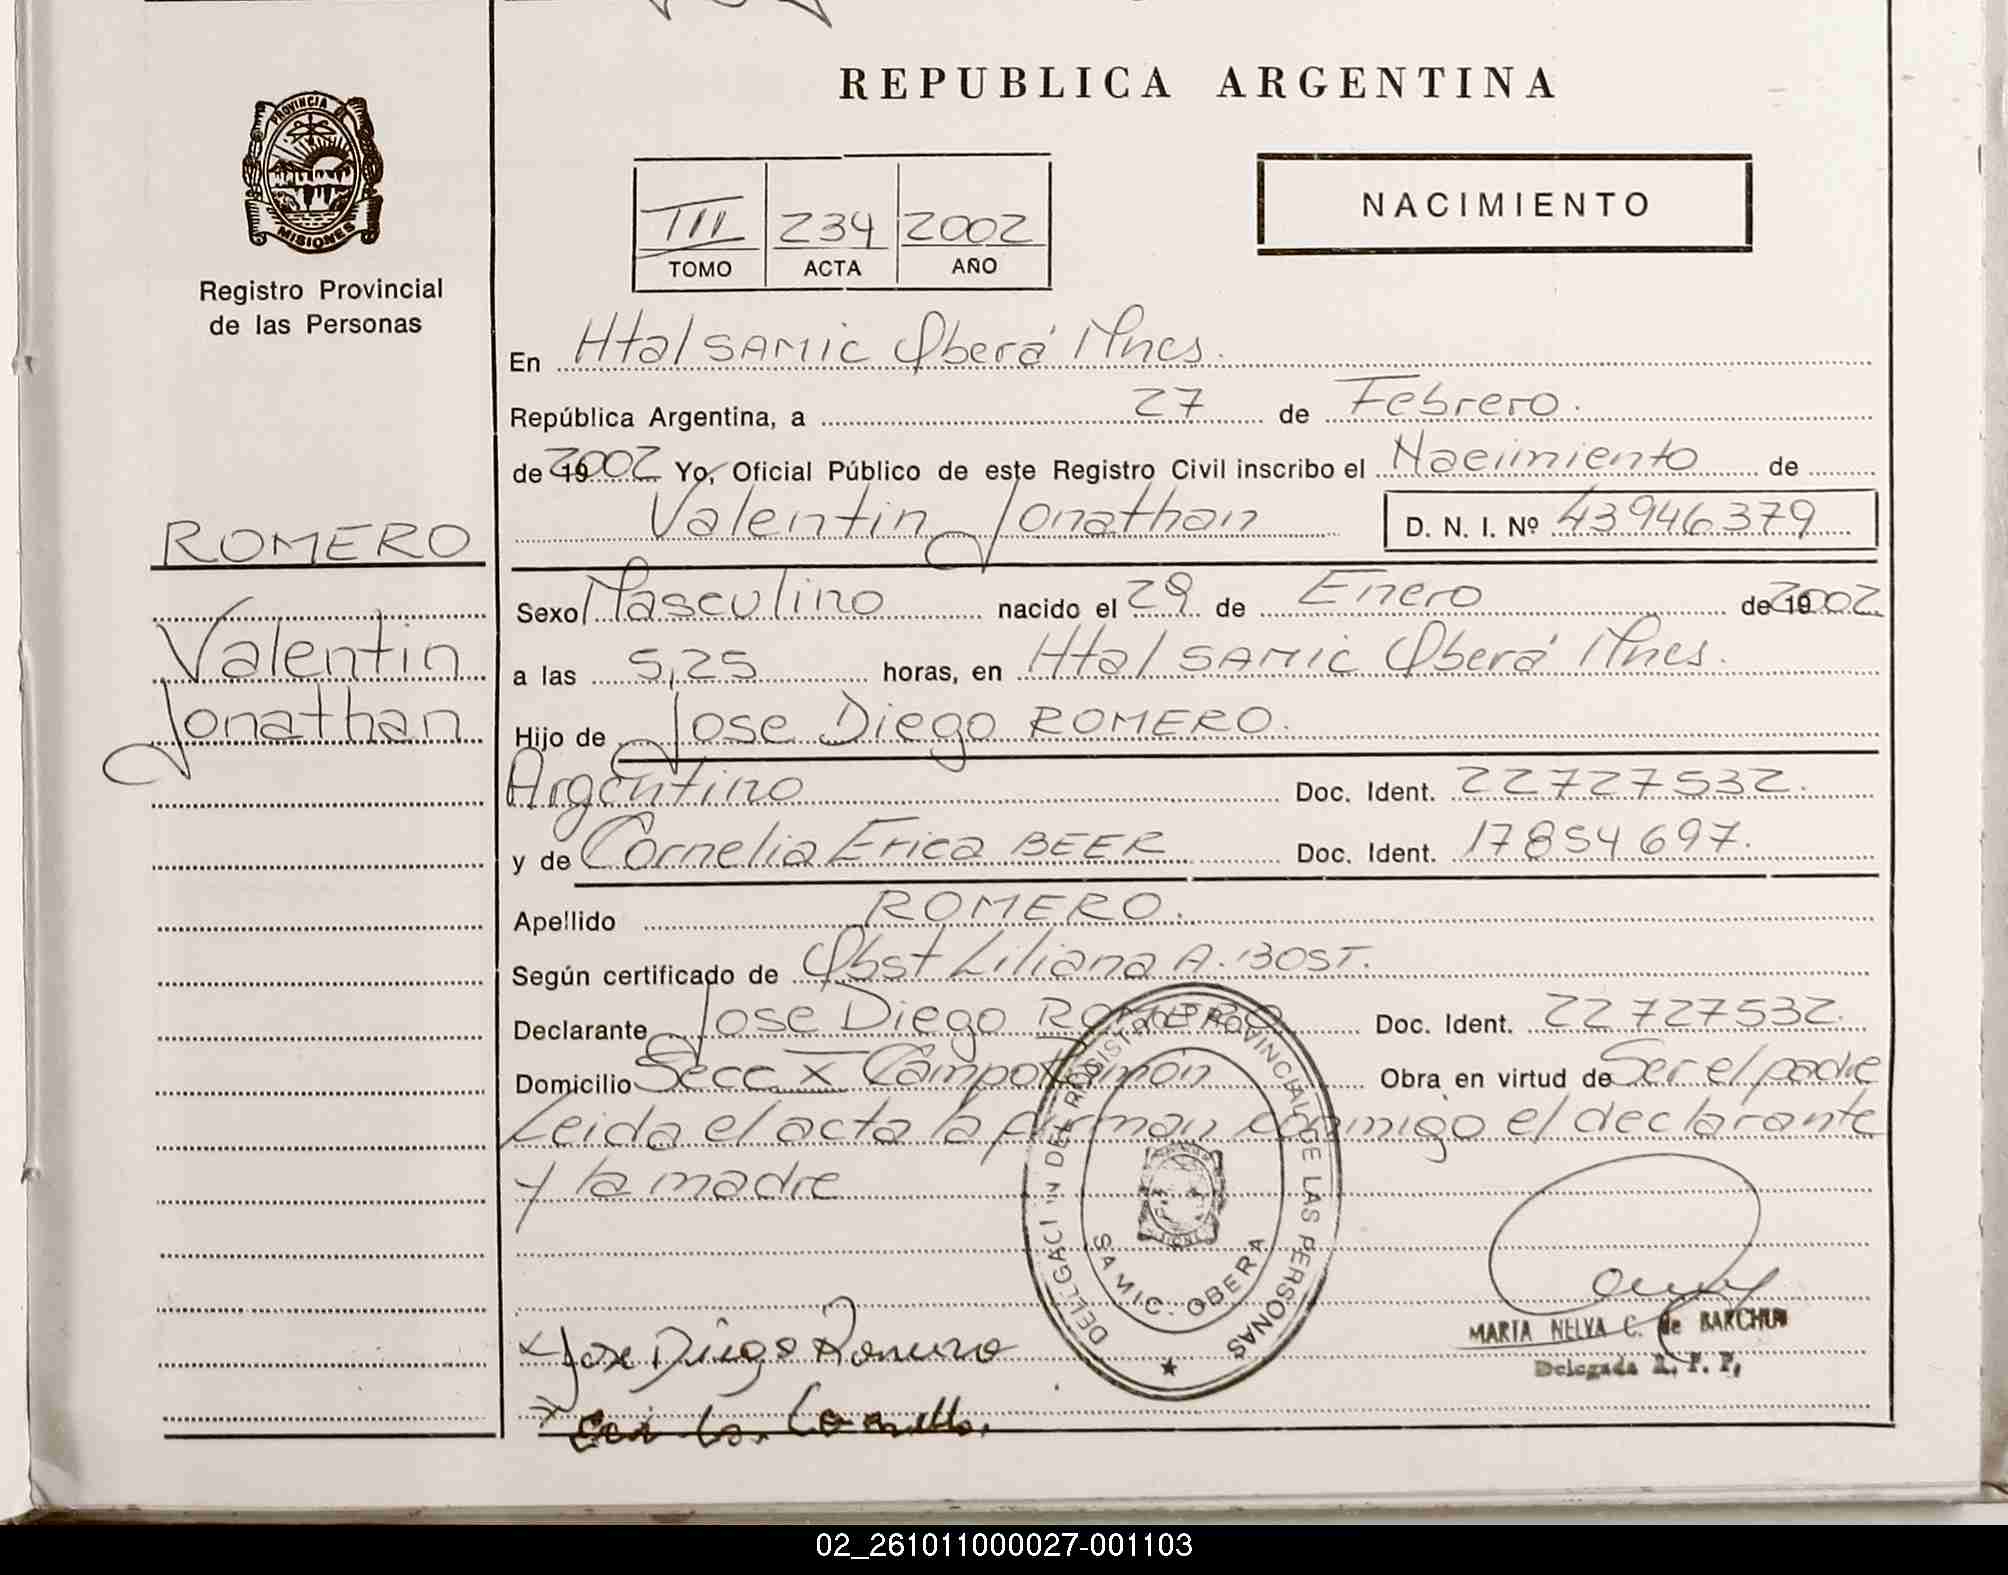 REPUBLICA ARGENTINA
PROVINCIA DE
MISIONES
Registro Provincial
de las Personas
III 234 2002
TOMO ACTA AÑO
NACIMIENTO
En Htal SAMIC Oberá Mnes.
República Argentina, a 27 de Febrero.
de 2002 Yo, Oficial Público de este Registro Civil inscribo el Nacimiento de
Valentin Jonathan D. N. I. Nº 43946379
ROMERO
Valentin
Jonathan
Sexo Masculino nacido el 29 de Enero de 2002.
a las 5,25 horas, en Htal SAMIC Oberá Mnes.
Hijo de Jose Diego ROMERO.
Argentino Doc. Ident. 22727532.
y de Cornelia Erica BEER Doc. Ident. 17854697.
Apellido ROMERO.
Según certificado de Obst Liliana A. BOST.
Declarante Jose Diego ROMERO Doc. Ident. 22727532.
Domicilio Secc. X Campo Ramón Obra en virtud de Ser el padre
Leida el acta la firman conmigo el declarante
y la madre
DELEGACI N DEL REGISTRO PROVINCIAL DE LAS PERSONAS
SAMIC. OBERA
x Jose Diego Romero
MARIA NELVA C. de BARCHUK
Delegada R. P. P.
02_261011000027-001103